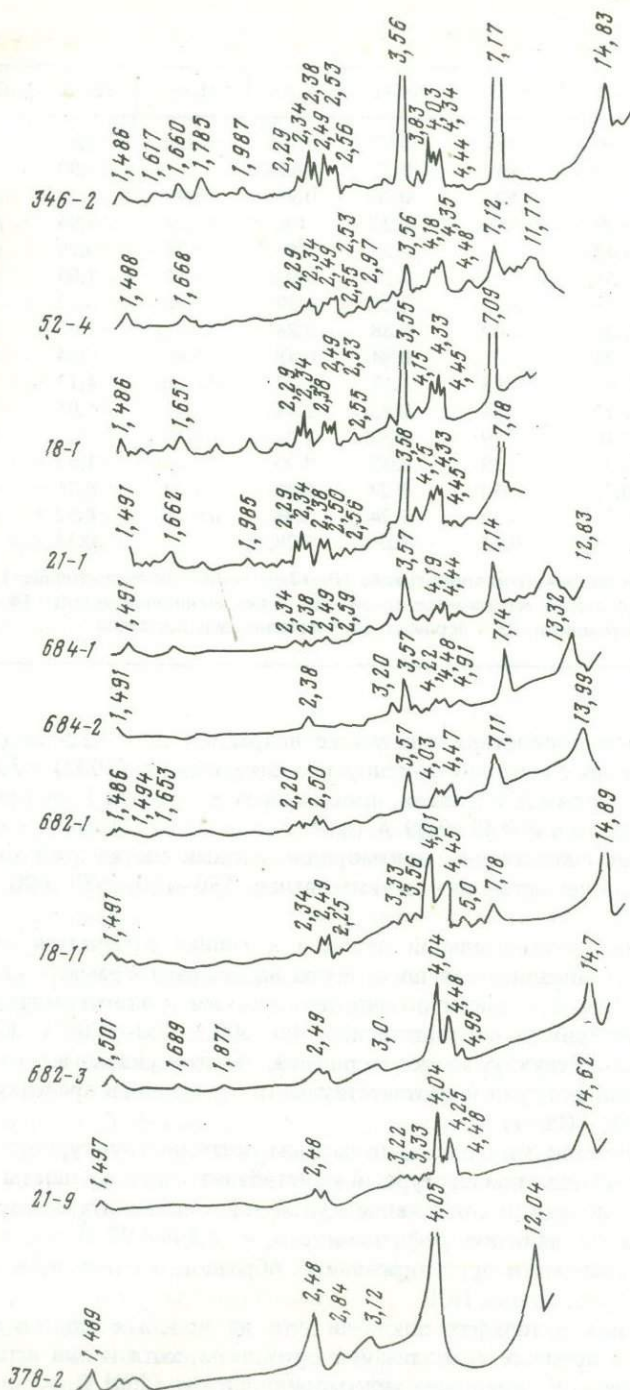 346-2 1,486 1,617 1,660 1,785 1,987 2,29 2,34 2,38 2,49 2,53 2,56 3,56 3,83 4,03 4,34 4,44 7,17 14,83
52-4 1,488 1,668 2,29 2,34 2,49 2,53 2,55 2,97 3,56 4,18 4,35 4,48 7,12 11,77
18-1 1,486 1,651 2,29 2,34 2,38 2,49 2,53 2,55 3,55 4,15 4,33 4,45 7,09
21-1 1,491 1,662 1,985 2,29 2,34 2,38 2,50 2,56 3,58 4,15 4,33 4,45 7,18
684-1 1,491 2,34 2,38 2,49 2,59 3,57 4,19 4,44 7,14 12,83
684-2 1,491 2,38 3,20 3,57 4,22 4,48 4,91 7,14 13,32
682-1 1,486 1,494 1,653 2,20 2,50 3,57 4,03 4,27 7,11 13,99
18-11 1,497 2,34 2,49 2,25 3,33 3,56 4,01 4,45 5,0 7,18 14,89
682-3 1,507 1,689 1,877 2,49 3,0 4,04 4,48 4,95 14,7
21-9 1,497 2,48 3,22 3,33 4,04 4,25 4,48 14,62
378-2 1,489 2,48 2,84 3,12 4,06 12,04